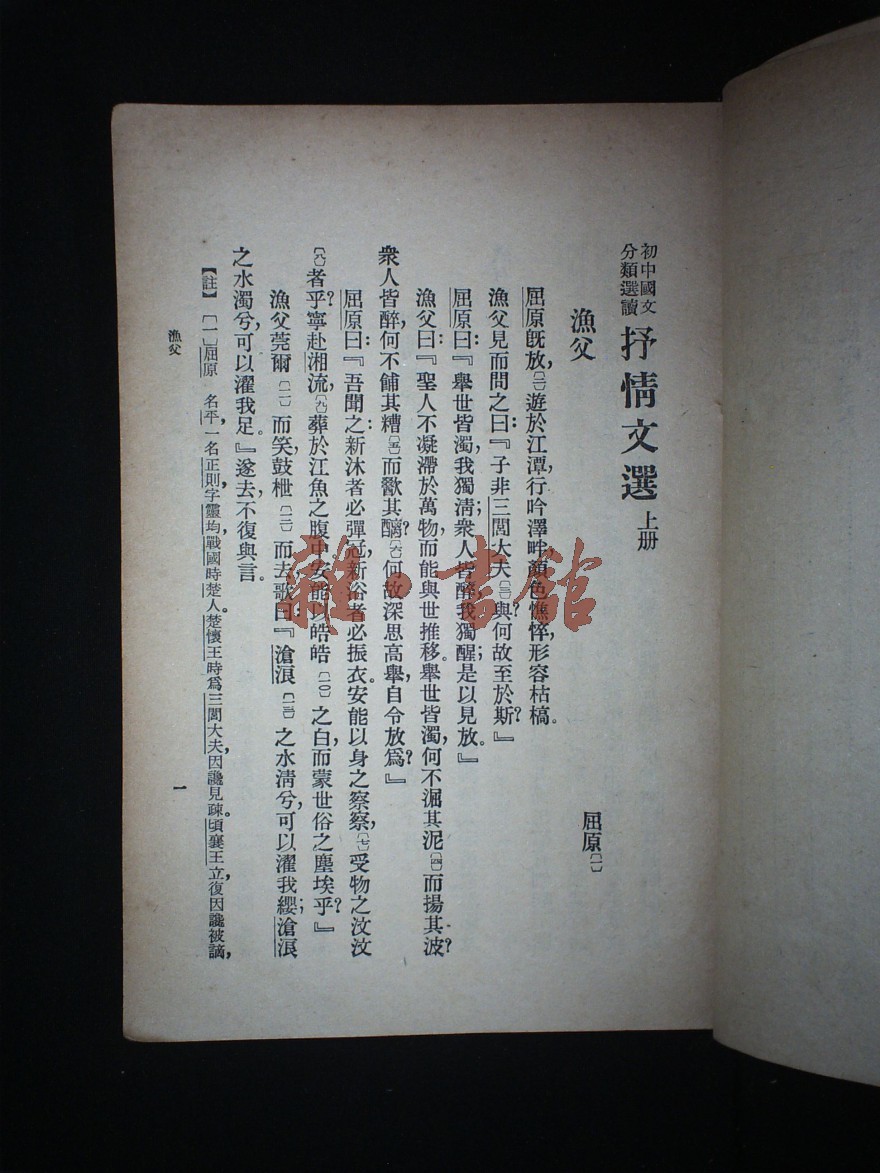 初中國文
分類選讀
抒情文選 上册
漁父
屈原〔一〕
屈原既放,〔二〕遊於江潭,行吟澤畔,顏色憔悴,形容枯槁。
漁父見而問之曰:『子非三閭大夫〔三〕與?何故至於斯?』
屈原曰:『舉世皆濁,我獨淸;衆人皆醉,我獨醒;是以見放。』
漁父曰:『聖人不凝滯於萬物,而能與世推移。舉世皆濁,何不淈其泥〔四〕而揚其波?
衆人皆醉,何不餔其糟〔五〕而歠其釃?〔六〕何故深思高舉,自令放爲?』
屈原曰:『吾聞之:新沐者必彈冠,新浴者必振衣。安能以身之察察,〔七〕受物之汶汶
〔八〕者乎?寧赴湘流,〔九〕葬於江魚之腹中,安能以皓皓〔一〇〕之白,而蒙世俗之塵埃乎?』
漁父莞爾〔一一〕而笑,鼓枻〔一二〕而去,歌曰:『滄浪〔一三〕之水淸兮,可以濯我纓;滄浪
之水濁兮,可以濯我足。』遂去,不復與言。
【註】〔一〕屈原 名平,一名正則,字靈均,戰國時楚人。楚懷王時爲三閭大夫,因讒見疎。頃襄王立,復因讒被謫,
漁父
一
雜·書館